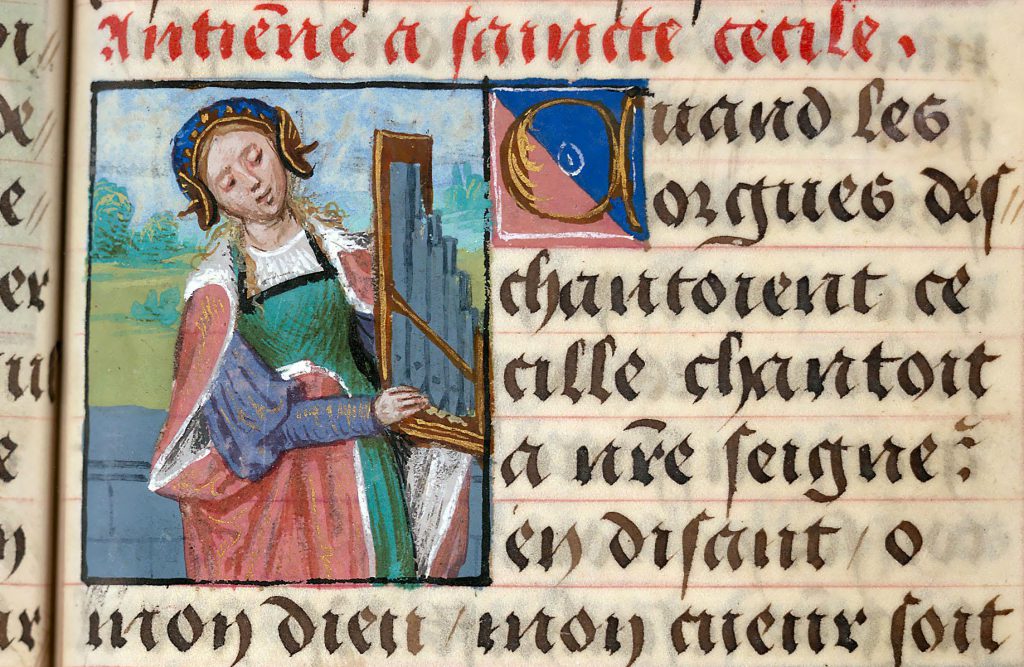 Antiēne a saincte cecile.
Quand les
orgues des
chantoient ce
cille chantoit
a nr̄e seigne᷑
en disant / o
mon dieu / mon cueur soit